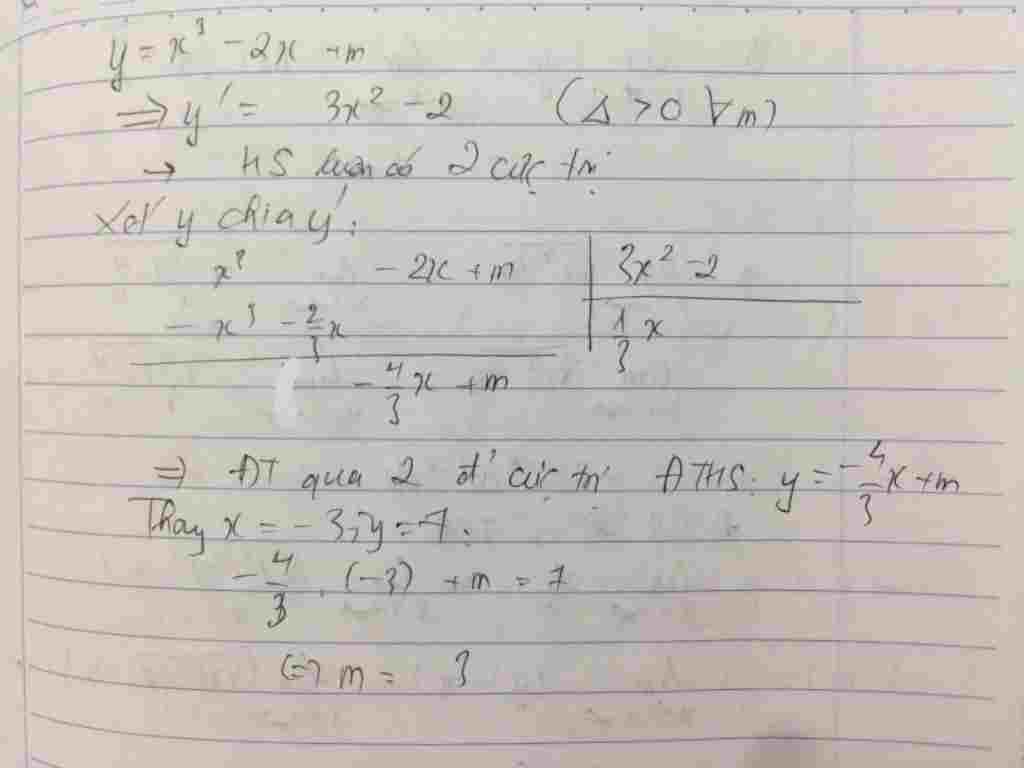 y = x³ - 2x + m
=> y' = 3x² - 2 (Δ > 0 ∀m)
→ HS luôn có 2 cực trị
Xét y chia y':
x³ - 2x + m | 3x² - 2
- x³ - 2/3 x | 1/3 x
- 4/3 x + m
=> ĐT qua 2 đ' cực trị ĐTHS: y = -4/3 x + m
Thay x = -3; y = 7:
-4/3 . (-3) + m = 7
<=> m = 3